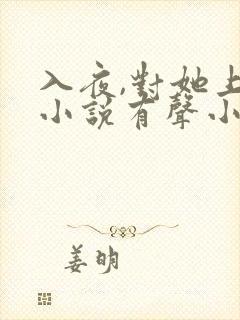 入夜,對她上
小說有聲小
姜明